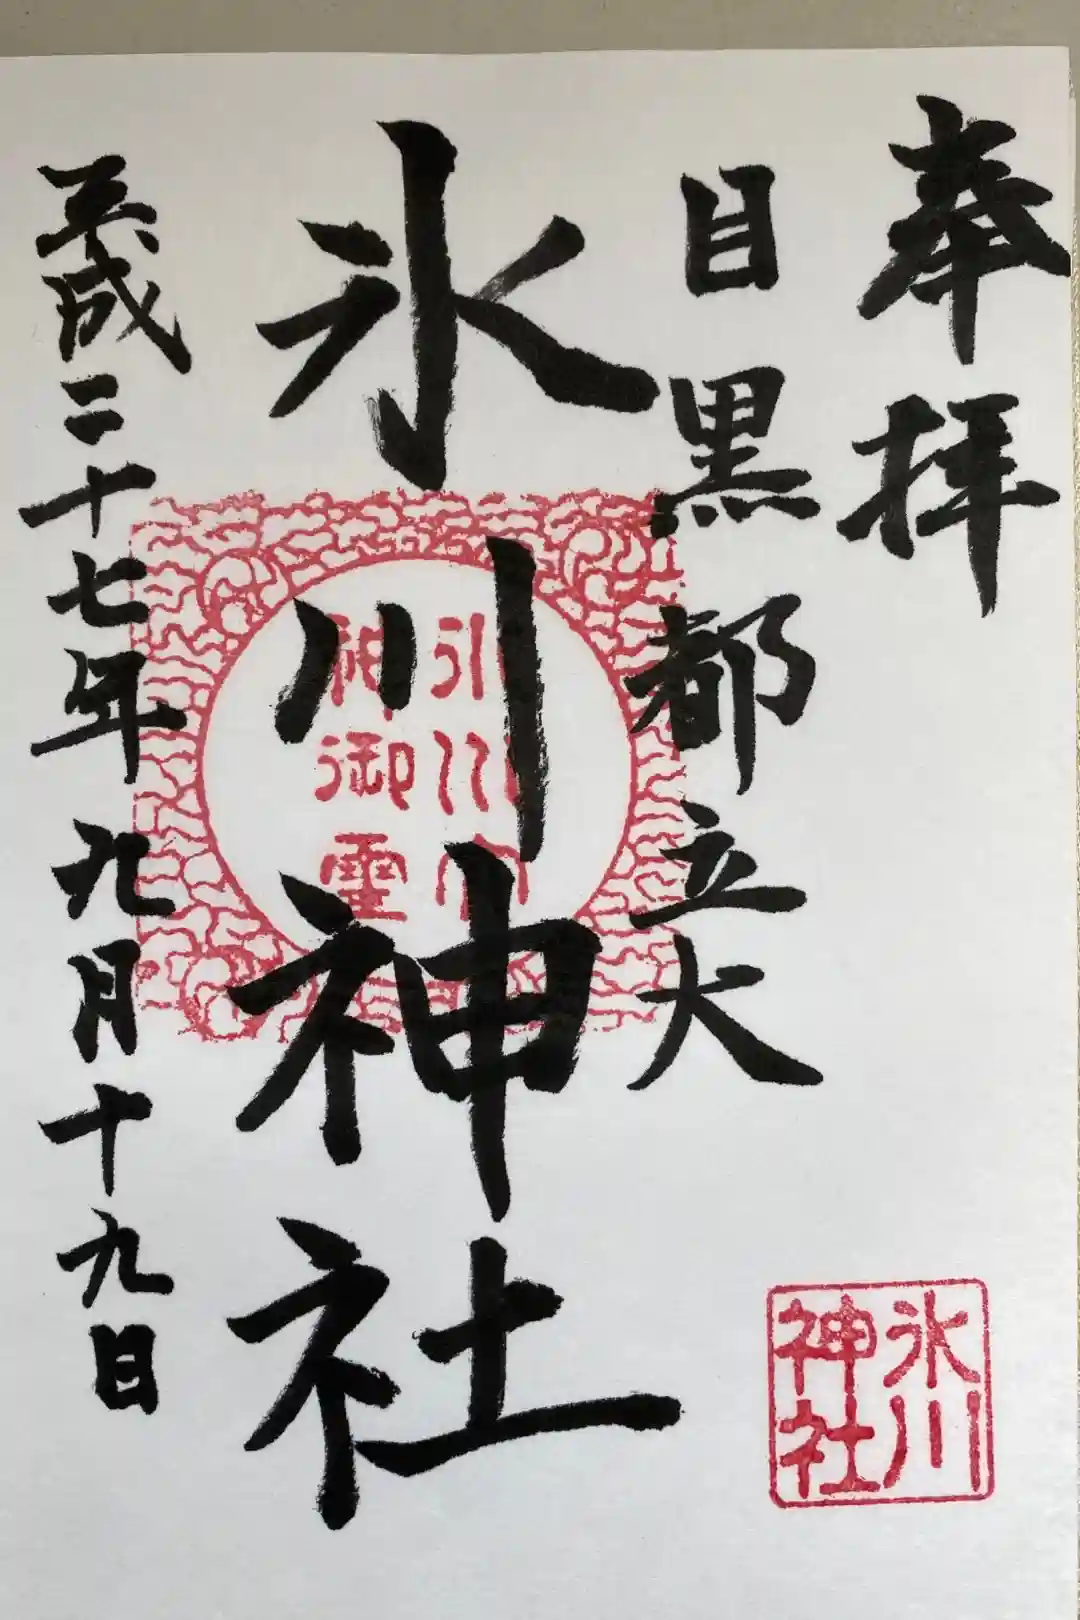 奉拝
目黒都立大
氷川神社
平成二十七年九月十九日
氷川宮
神御霊
氷川
神社